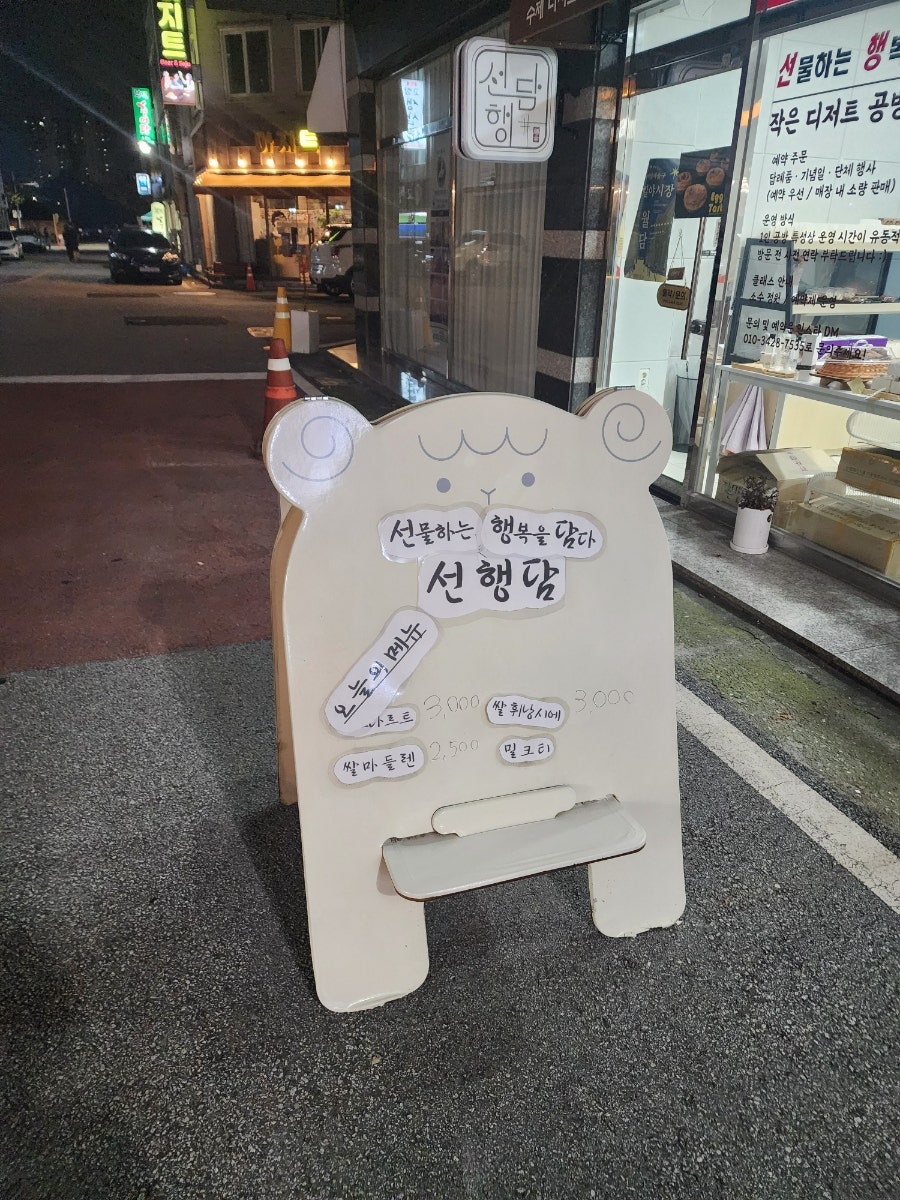 지트
Beer & Soju
수제 디저트
선담
행
선물하는 행복
작은 디저트 공방
예약 주문
답례품 · 기념일 · 단체 행사
(예약 우선 / 매장 내 소량 판매)
운영 방식
1인 공방 특성상 운영 시간이 유동적
방문 전 사전 연락 부탁드립니다 :)
클래스 안내
소수 정원 예약제 운영
문의 및 예약은 인스타 DM
010-3428-7535로
야시장
Egg
Tart
선물하는 행복을 담다
선행담
오늘의 메뉴
타르트 3,000 쌀휘낭시에 3,000
쌀마들렌 2,500 밀크티